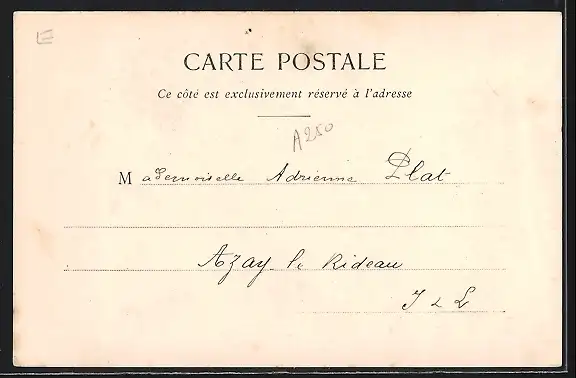 CARTE POSTALE
Ce côté est exclusivement réservé à l'adresse
A250
Mademoiselle Adrienne Plat
Azay le Rideau
I & L